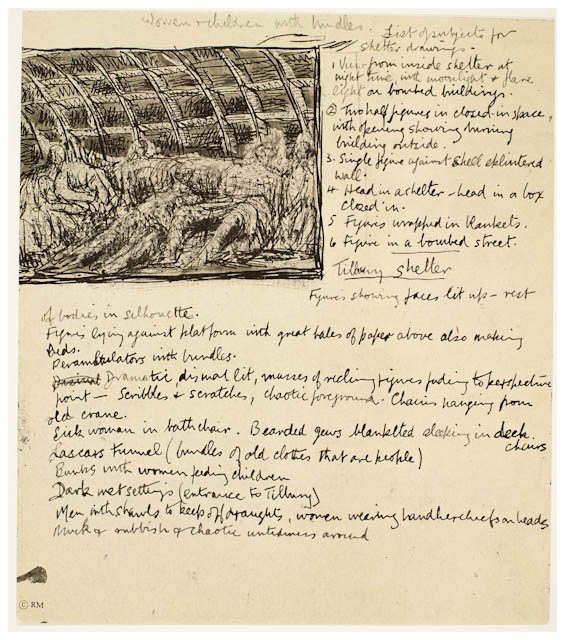 Women & children with bundles.
List of subjects for
shelter drawings -
1 View from inside shelter at
night time, with moonlight & flare
light on bombed buildings.
② Two half figures in closed-in space,
with opening showing burning
building outside.
3. Single figure against shell splintered
wall.
4 Head in a shelter - head in a box
closed in.
5 Figures wrapped in blankets.
6 Figure in a bombed street.
Tilbury shelter
Figures showing faces lit up - rest
of bodies in silhouette.
Figures lying against platform with great bales of paper above also making
beds.
Perambulators with bundles.
Dramatic, dismal lit, masses of reclining figures fading to perspective
point - Scribbles & scratches, chaotic foreground. Chains hanging from
old crane.
Sick woman in bathchair. Bearded jews blanketed sleeping in deck
chairs
Lascars Tunnel (bundles of old clothes that are people)
Bunks with women feeding children
Dark wet settings (entrance to Tilbury)
Men with shawls to keep off draughts, women wearing handkerchiefs on heads
Muck & rubbish & chaotic untidiness around
© RM